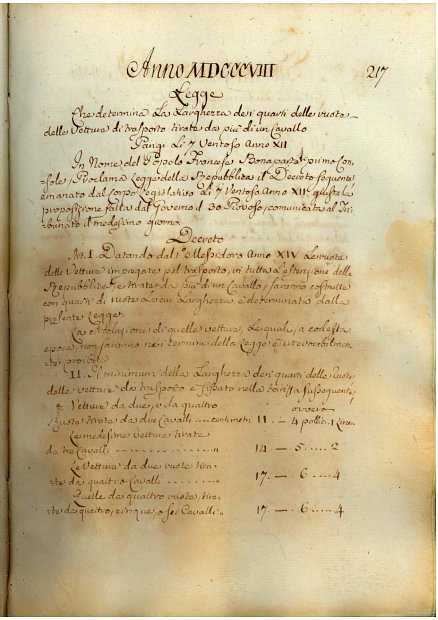 Anno MDCCCVIII
217
Legge
Che determina La Largherra dei quarti delle ruote
delle Vetture di trasporto tirate da piu' di un Cavallo
Parigi Li 7 Ventoso Anno XII
In Nome del Popolo Francese Bonaparte primo Con-
sole, Proclama Legge della Repubblica il Decreto seguente
emanato dal Corpo Legislativo Li 7 Ventoso Anno XII giusta la
proposizione fatta dal Governo il 30 Piovoso, comunicata al Tri-
bunato il medesimo giorno
Decreto
Art. I. Datando dal 1º Messidoro Anno XIV Le ruote
delle Vetture impiegate pel trasporto, in tutta L'estensione della
Repubblica, e tirate da piu' di un Cavallo, saranno costruite
con quarti di ruota La cui Largherra è determinata dalla
presente Legge.
La circolazione di quelle vetture, Le quali, a codesta
epoca, non saranno nei termini della Legge è irrevocabilmen-
te proibita
II. Il minimum della Largherra dei quarti delle ruote
delle vetture da trasporto è fissato nella tariffa susseguente,
Vetture da due, o da quattro
ovvero
Ruote tirate da due Cavalli centimetri 11 — 4 pollici 1 Linea
Le medesime vetture tirate
da tre Cavalli 14 — 5 2
Le Vetture da due ruote tira-
te da quattro Cavalli 17 — 6 4
Quelle da quattro ruote, tira-
te da quattro, cinque, o sei Cavalli 17 — 6 4